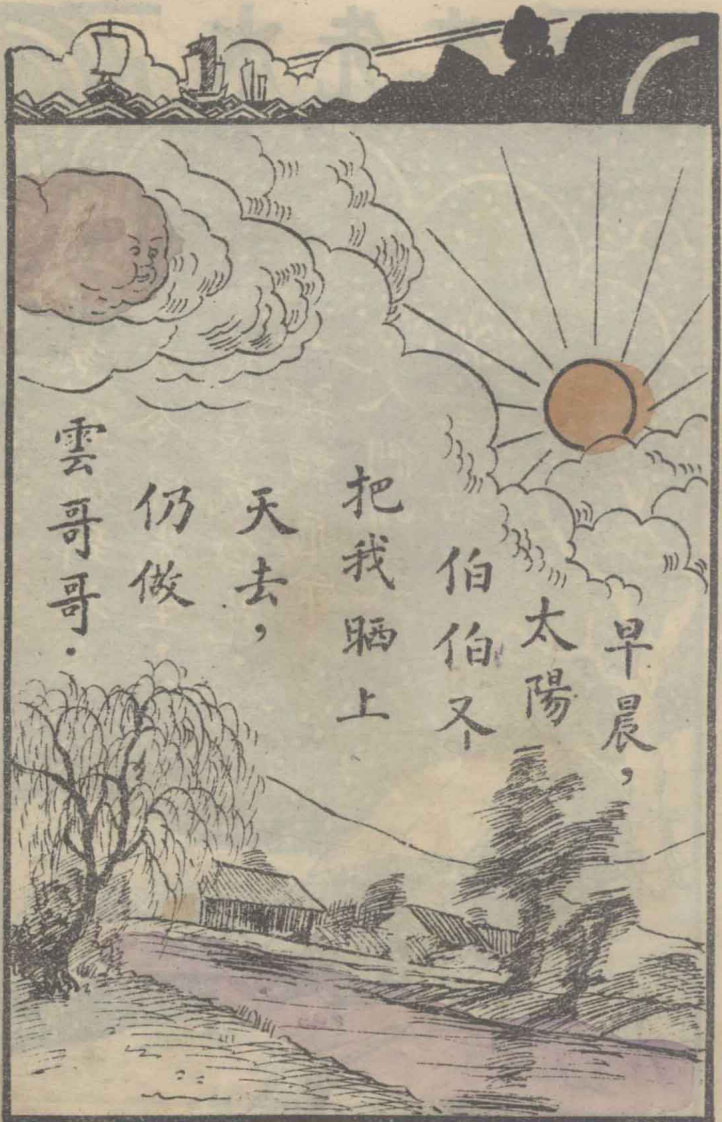 早晨，
太陽
伯伯又
把我晒上
天去，
仍做
雲哥哥．